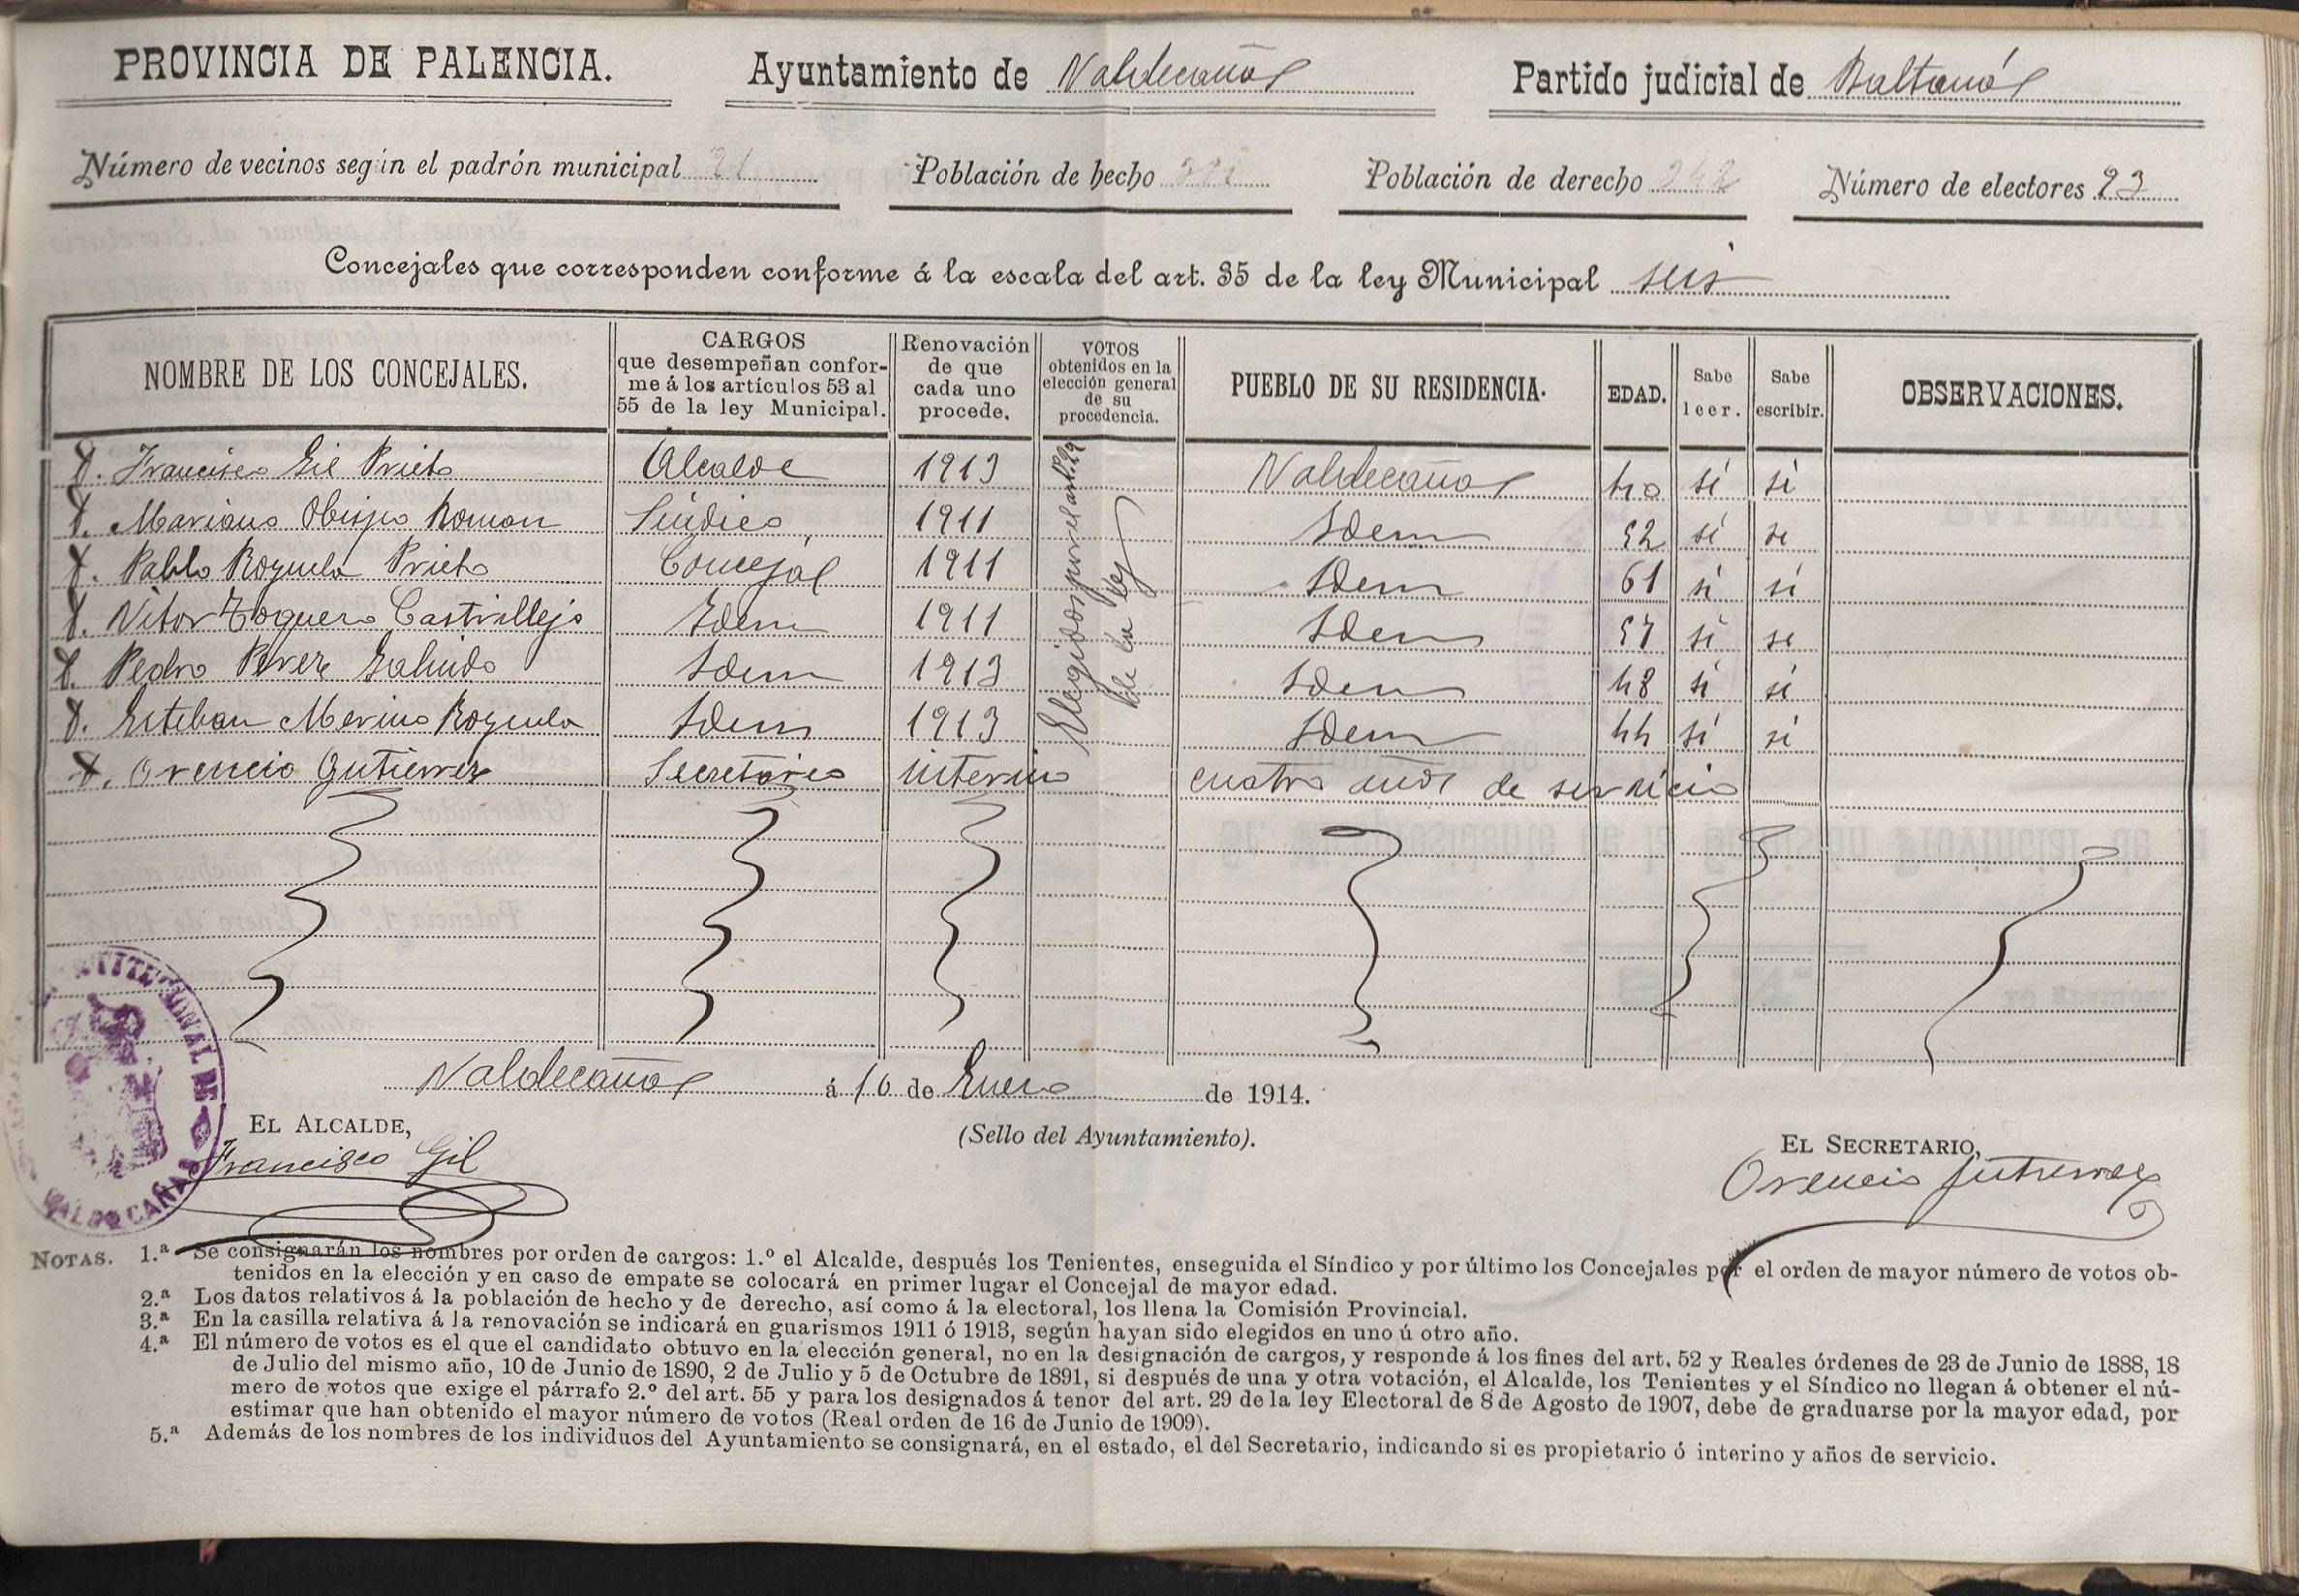 PROVINCIA DE PALENCIA. Ayuntamiento de Valdecañas Partido judicial de Baltanás
Número de vecinos según el padrón municipal Población de hecho Población de derecho 242 Número de electores 93
Concejales que corresponden conforme á la escala del art. 35 de la ley Municipal seis
NOMBRE DE LOS CONCEJALES.
CARGOS
que desempeñan confor-
me á los artículos 53 al
55 de la ley Municipal.
Renovación
de que
cada uno
procede.
VOTOS
obtenidos en la
elección general
de su
procedencia.
PUEBLO DE SU RESIDENCIA.
EDAD.
Sabe
leer.
Sabe
escribir.
OBSERVACIONES.
D. Francisco Gil Prieto Alcalde 1913 Valdecañas 40 si si
D. Mariano Obispo Roman Síndico 1911 Idem 52 si si
D. Pablo Royuela Prieto Concejal 1911 Idem 61 si si
D. Vitor Noguero Castrillejo Idem 1911 Idem 57 si si
D. Pedro Perez Galindo Idem 1913 Idem 48 si si
D. Esteban Merino Royuela Idem 1913 Idem 44 si si
D. Orencio Gutierrez Secretario interino cuatro años de servicio
Elegidos por el artº 29
de la ley
Valdecañas á 10 de Enero de 1914.
EL ALCALDE,
Francisco Gil
(Sello del Ayuntamiento).
EL SECRETARIO,
Orencio Gutierrez
CONSTITUCIONAL DE
VALDECAÑAS
NOTAS. 1.ª Se consignarán los nombres por orden de cargos: 1.º el Alcalde, después los Tenientes, enseguida el Síndico y por último los Concejales por el orden de mayor número de votos ob-
tenidos en la elección y en caso de empate se colocará en primer lugar el Concejal de mayor edad.
2.ª Los datos relativos á la población de hecho y de derecho, así como á la electoral, los llena la Comisión Provincial.
3.ª En la casilla relativa á la renovación se indicará en guarismos 1911 ó 1913, según hayan sido elegidos en uno ú otro año.
4.ª El número de votos es el que el candidato obtuvo en la elección general, no en la designación de cargos, y responde á los fines del art. 52 y Reales órdenes de 23 de Junio de 1888, 18
de Julio del mismo año, 10 de Junio de 1890, 2 de Julio y 5 de Octubre de 1891, si después de una y otra votación, el Alcalde, los Tenientes y el Síndico no llegan á obtener el nú-
mero de votos que exige el párrafo 2.º del art. 55 y para los designados á tenor del art. 29 de la ley Electoral de 8 de Agosto de 1907, debe de graduarse por la mayor edad, por
estimar que han obtenido el mayor número de votos (Real orden de 16 de Junio de 1909).
5.ª Además de los nombres de los individuos del Ayuntamiento se consignará, en el estado, el del Secretario, indicando si es propietario ó interino y años de servicio.